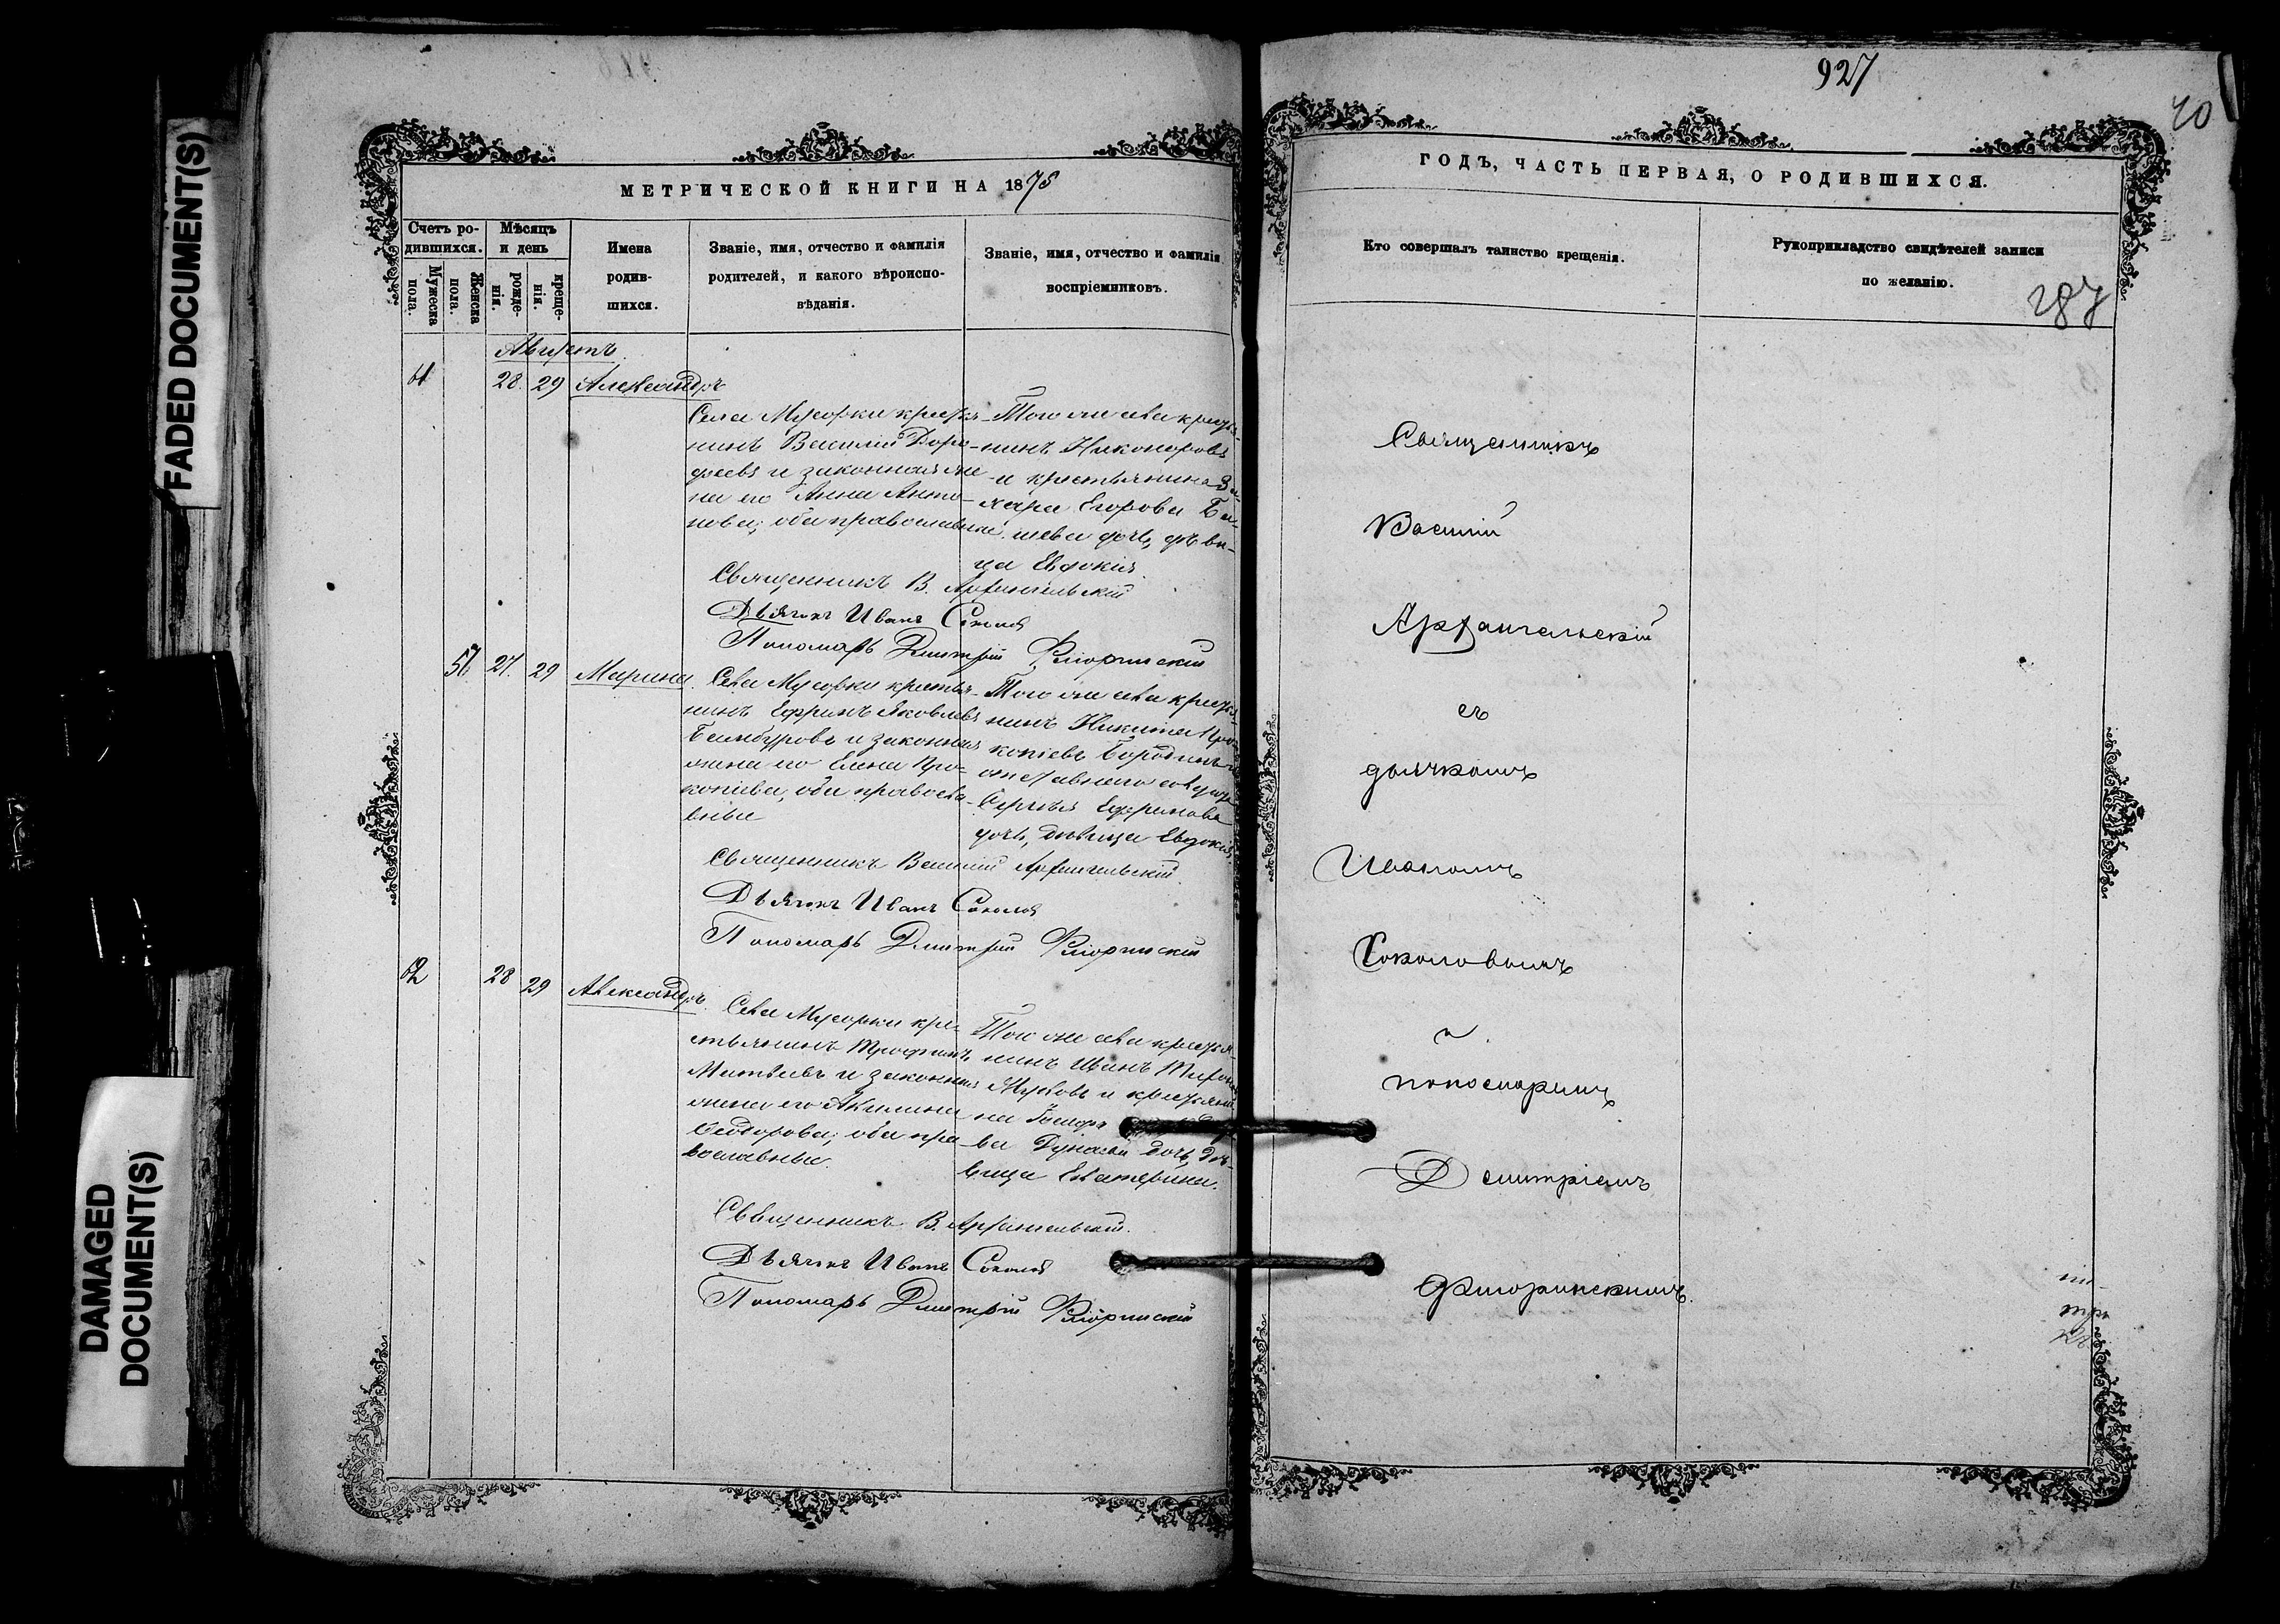 FADED DOCUMENT(S)
DAMAGED
DOCUMENT(S)
МЕТРИЧЕСКОЙ КНИГИ НА 1875
Счетъ ро-
дившихся.
Мужеска
пола.
Женска
пола.
Мѣсяцъ
и день
рожде-
нія.
креще-
нія.
Имена
родив-
шихся.
Званіе, имя, отчество и фамилія
родителей, и какого вѣроиспо-
вѣданія.
Званіе, имя, отчество и фамилія
воспріемниковъ.
Августъ
61 28. 29 Александръ
Села Мусорки крестья-
нинъ Василій Доро-
феевъ и законная же
на его Анна Анто-
нова; оба православные.
Того же села крестья-
нинъ Никоноровъ
и крестьянина За-
хара Егорова
шева дочь, дѣви-
ца Евдокія.
Священникъ В. Архангельскій
Дьячокъ Иванъ Соколовъ
Пономарь Дмитрій Флоринскій
57. 27. 29 Марина.
Села Мусорки крестья-
нинъ Ефримъ Яковлевъ
и законная
жена его Елена Про-
копіева, оба правосла-
вные
Того же села крестья-
нинъ Никита Про-
копіевъ Бородинъ и
Сергѣя Ефримова
дочь, дѣвица Евдокія.
Священникъ Василій Архангельскій.
Дьячокъ Иванъ Соколовъ
Пономарь Дмитрій Флоринскій
62 28 29 Александръ.
Села Мусорки кре-
стьянинъ Трофимъ
Матвѣевъ и законная
жена его Акилина
Ѳедорова; оба пра-
вославные.
Того же села крестья-
нинъ Иванъ
и крестьяни
на
ва дочь, дѣ-
вица Екатерина.
Священникъ В. Архангельскій.
Дьячокъ Иванъ Соколовъ
Пономарь Дмитрій Флоринскій
927
40
ГОДЪ, ЧАСТЬ ПЕРВАЯ, О РОДИВШИХСЯ.
Кто совершалъ таинство крещенія.
Рукоприкладство свидѣтелей записи
по желанію.
287
Священникъ
Василій
Архангельскій
съ
дьячкомъ
Иваномъ
Соколовымъ
и
пономаремъ
Димитріемъ
Флоринскимъ.